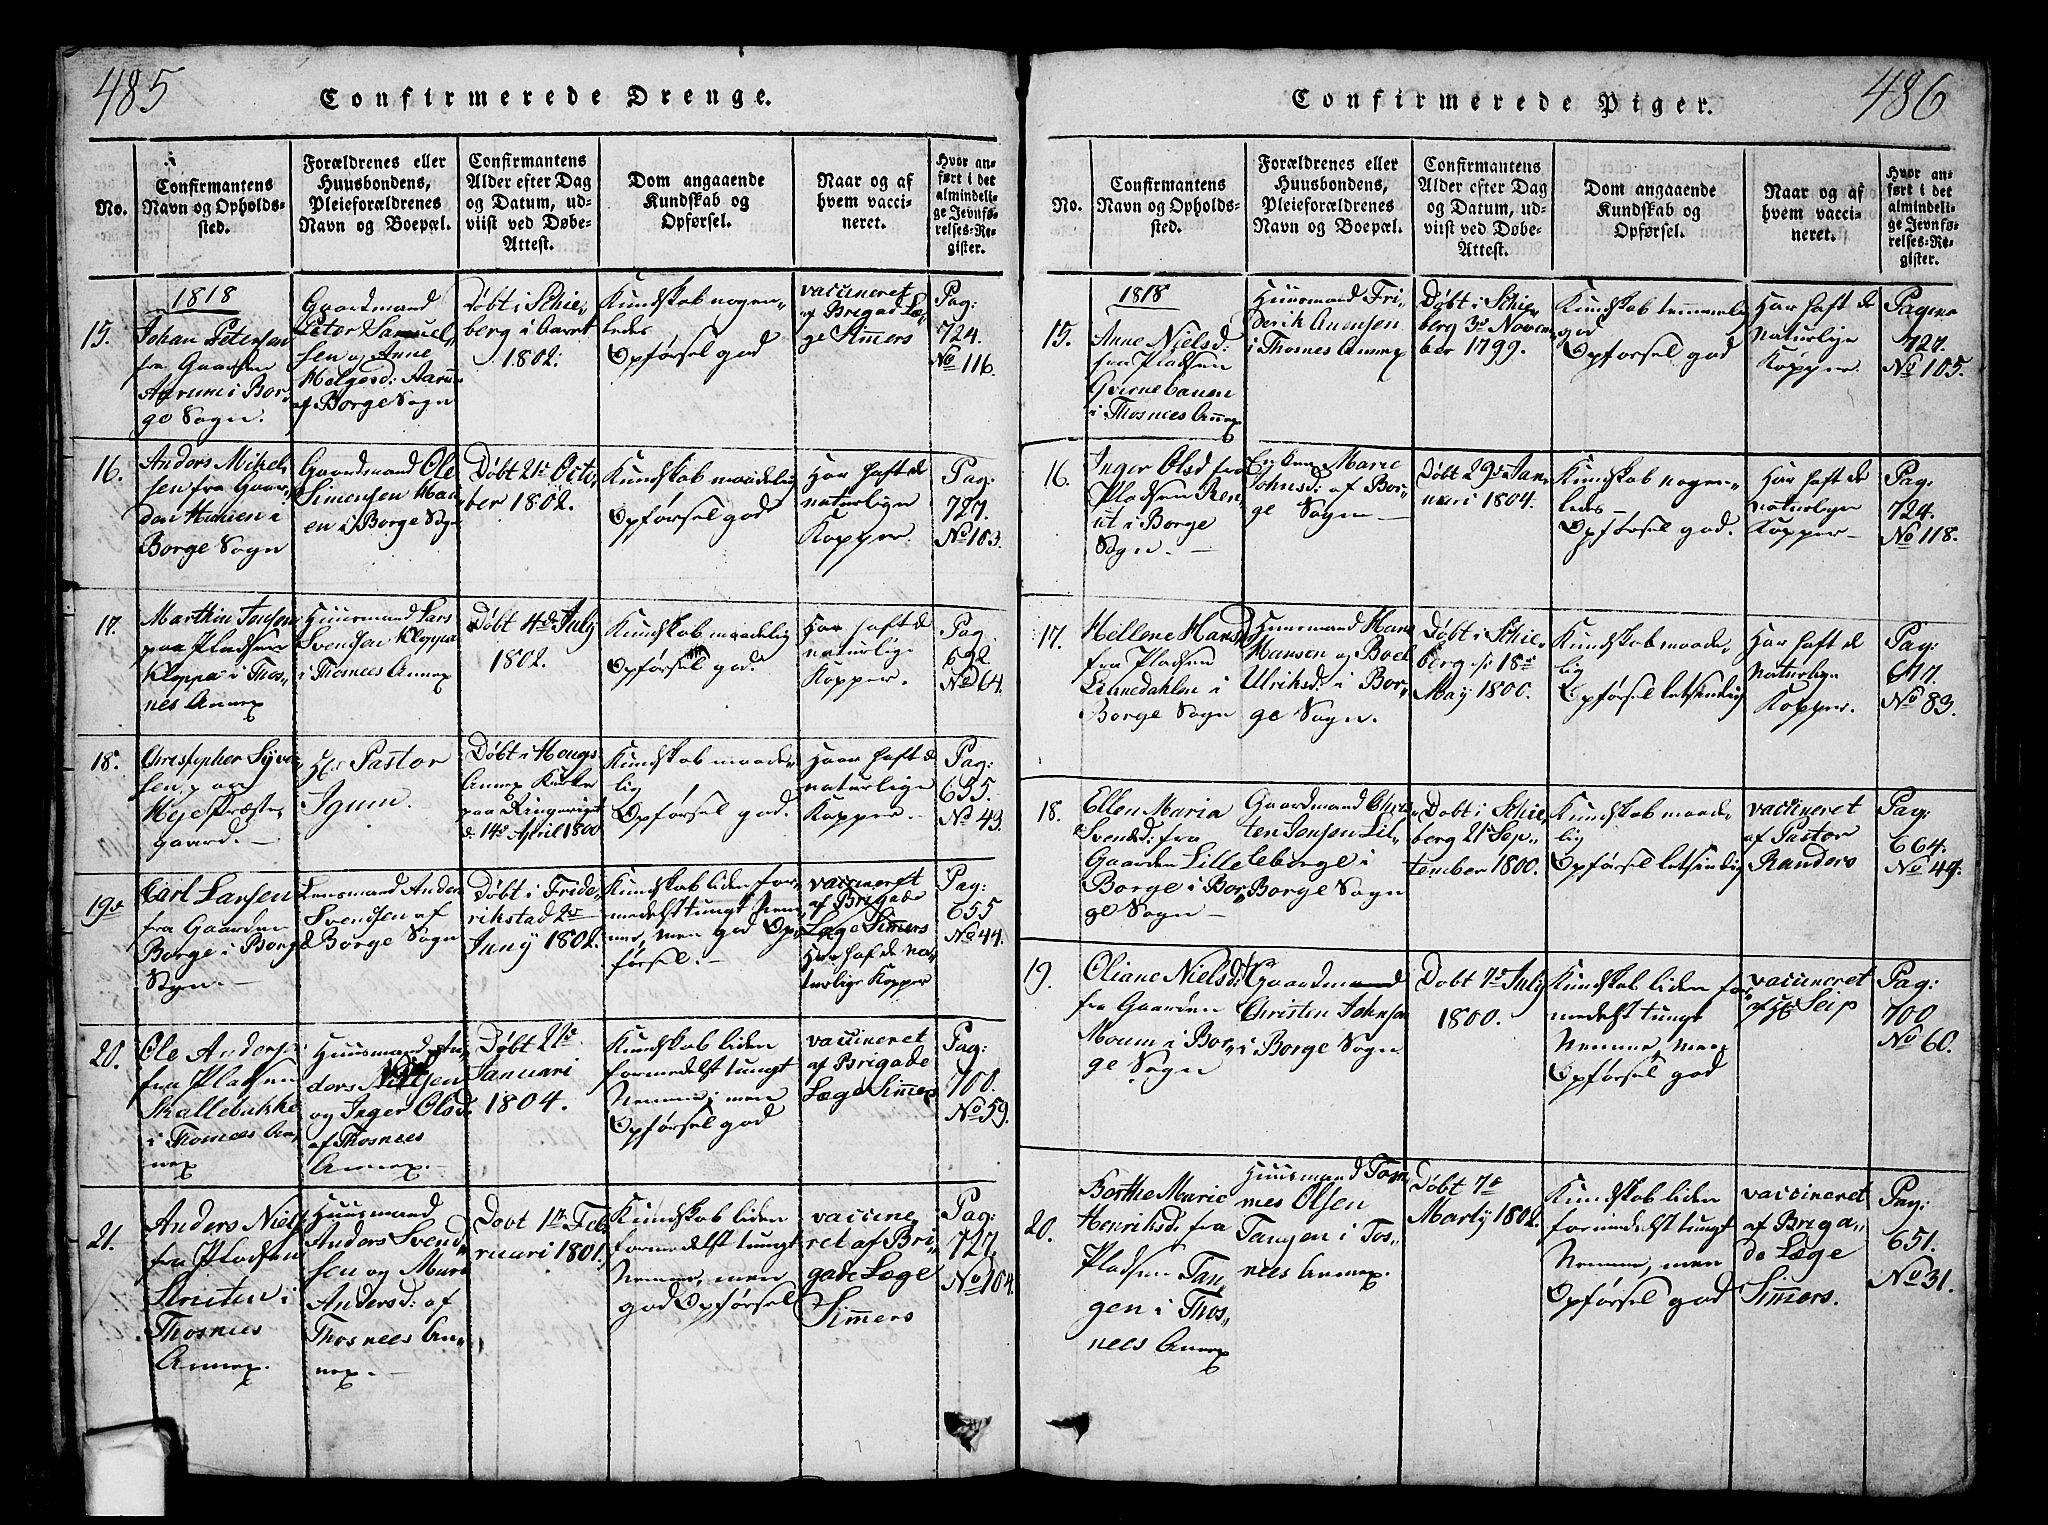 485
Confirmerede Drenge.
No.
Confirmantens
Navn og Opholds-
sted.
Forældrenes eller
Huusbondens,
Pleieforældrenes
Navn og Boepæl.
Confirmantens
Alder efter Dag
og Datum, ud-
viist ved Døbe-
Attest.
Dom angaaende
Kundskab og
Opførsel.
Naar og af
hvem vacci-
neret.
Hvor an-
ført i det
almindeli-
ge Jevnfø-
relses-Re-
gister.
1818
15.
Johan Petersen
fra Gaarden
Aarum i Bor-
ge Sogn.
Gaardmand
Peter Samuel-
sen og Anne
Helgesd: Aarum
af Borge Sogn
Døbt i Schie-
berg i Aaret
1802.
Kundskab nogen-
ledes
Opførsel god
vaccineret
af Brigade Læ-
ge Simmers
Pag:
724.
No 116.
16.
Anders Mikel-
sen fra Gaar-
den
Borge Sogn
Gaardmand Ole
Simensen
i Borge Sogn
Døbt 21de Octo-
ber 1802.
Kundskab maadelig
Opførsel god
Har haft de
naturlige
Kopper.
Pag:
727.
No 103.
17.
Marthin Jensen
paa Pladsen
Kloppa i Thos-
nes Annex
Huusmand Lars
Svendsen Kloppa
i Thosnees Annex
Døbt 4de July
1802.
Kundskab maadelig
Opførsel god.
Har haft de
naturlige
Kopper.
Pag:
692
No 64.
18.
Christopher
sen, paa
Præste-
gaard.
Hr: Pastor
Døbt i Houg
Annex Kirke
paa Ringeriget
d: 14de April 1800
Kundskab maade-
lig
Opførsel god.
Haar haft de
naturlige
Kopper.
Pag:
655.
No 43.
19de
Carl Larsen
fra Gaarden
Borge i Borge
Sogn.
Lensmand Anders
Svendsen af
Borge Sogn
Døbt i Fride-
rikstad 2de
Juny 1802.
Kundskab liden for-
medelst tungt Nem-
me, men god Op-
førsel.
vaccineret
af Brigade
Læge Simmers
Har haft de na-
turlige Kopper
Pag:
655
No 44.
20.
Ole Anders:
fra Pladsen
Skallebakke
i Thosnees An-
nex
Huusmand An-
ders Nielsen
og Inger Olsd:
af Thosnees
Annex.
Døbt 21de
Januari
1804.
Kundskab liden
formedelst tungt
Nemme, men
Opførsel god
vaccineret
af Brigade
Læge Simmers
Pag:
700.
No 59.
21.
Anders Niels:
fra Pladsen
i
Thosnees
Annex.
Huusmand
Anders Svend-
sen og Mari
Andersd: af
Thosnees An-
nex.
Døbt 1de Feb-
ruari 1801.
Kundskab liden
formedelst tungt
Nemme, men
god Opførsel
vaccine-
ret af Bri-
gade Læge
Simmers
Pag:
727.
No 104.
486
Confirmerede Piger.
No.
Confirmantens
Navn og Opholds-
sted.
Forældrenes eller
Huusbondens,
Pleieforældrenes
Navn og Boepæl.
Confirmantens
Alder efter Dag
og Datum, ud-
viist ved Døbe-
Attest.
Dom angaaende
Kundskab og
Opførsel.
Naar og af
hvem vacci-
neret.
Hvor an-
ført i det
almindeli-
ge Jevnfø-
relses-Re-
gister.
1818
15.
Anne Nielsd:
fra Pladsen
i Thosnees Annex
Huusmand Fri-
derik
i Thosnes Annex
Døbt i Schie-
berg 3de Novem-
ber 1799.
Kundskab temmelig
god
Opførsel god
Har haft de
naturlige
Kopper.
Pagina
727.
No 105.
16.
Inger Olsd fra
Pladsen
i Borge
Sogn.
Enken Marie
Johnsd: af Bor-
ge Sogn
Døbt 29de Jan-
uari 1804.
Kundskab nogen-
ledes
Opførsel god.
Har haft de
naturlige
Kopper
Pag:
724.
No 118.
17.
Hellene Hansd
fra Pladsen
Linnedahlen i
Borge Sogn
Huusmand Hans
Hansen og Boel
Ulriksd: i Bor-
ge Sogn.
Døbt i Schie-
berg 18de
May 1800.
Kundskab maade-
lig
Opførsel letsindig
Har haft de
Naturlige
Kopper.
Pag:
677.
No 83.
18.
Ellen Maria
Svendsd: fra
Gaarden Lille
Borge i Bor-
ge Sogn
Gaardmand Chris-
ten Jensen Lil-
leborge i
Borge Sogn
Døbt i Schie-
berg 21de Sep-
tember 1800.
Kundskab maade-
lig
Opførsel letsindig
vaccineret
af Pastor
Randers
Pag:
664.
No 49.
19.
Oliane Nielsd:
fra Gaarden
Moum i Bor-
ge Sogn
Gaardmand
Christen Johnsen
i Borge Sogn
Døbt 7de July
1800.
Kundskab liden for-
medelst tungt
Nemme, men
Opførsel god
vaccineret
af Hr Seip
Pag:
700
No 60.
20.
Berthe Marie
Henriksd: fra
Pladsen Tan-
gen i Thos-
nees Annex
Huusmand Tom-
mes Olsen
Tangen i Tos-
nees Annex.
Døbt 7de
Marty 1802.
Kundskab liden
formedelst tungt
Nemme, men
Opførsel god
vaccineret
af Briga-
de Læge
Simmers.
Pag:
651.
No 31.